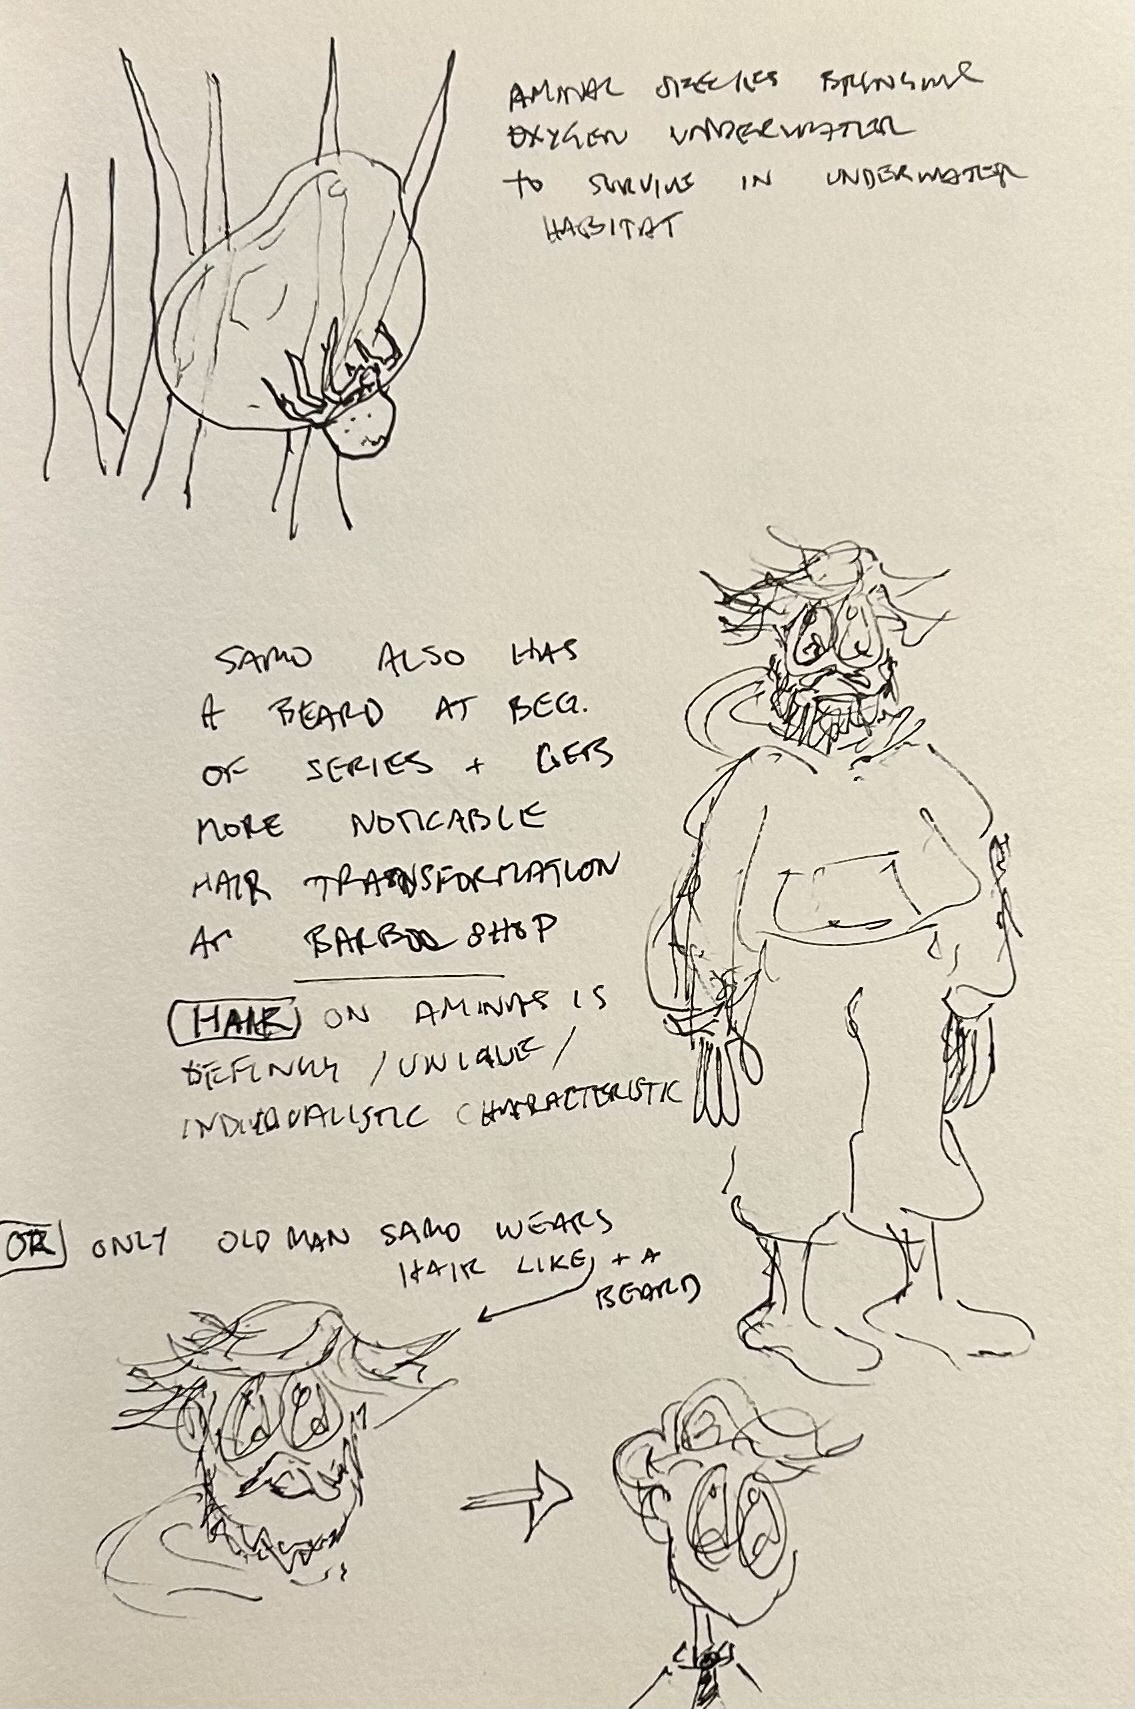 AMINAL SPECIES BRINGING
OXYGEN UNDERWATER
TO SURVIVE IN UNDERWATER
HABITAT
SAMO ALSO HAS
A BEARD AT BEG.
OF SERIES + GETS
MORE NOTICABLE
HAIR TRANSFORMATION
AT SHOP
HAIR ON AMINALS IS
/ UNIQUE /
INDIVIDUALISTIC CHARACTERISTIC
OR ONLY OLD MAN SAMO WEARS
HAIR LIKE, + A
BEARD